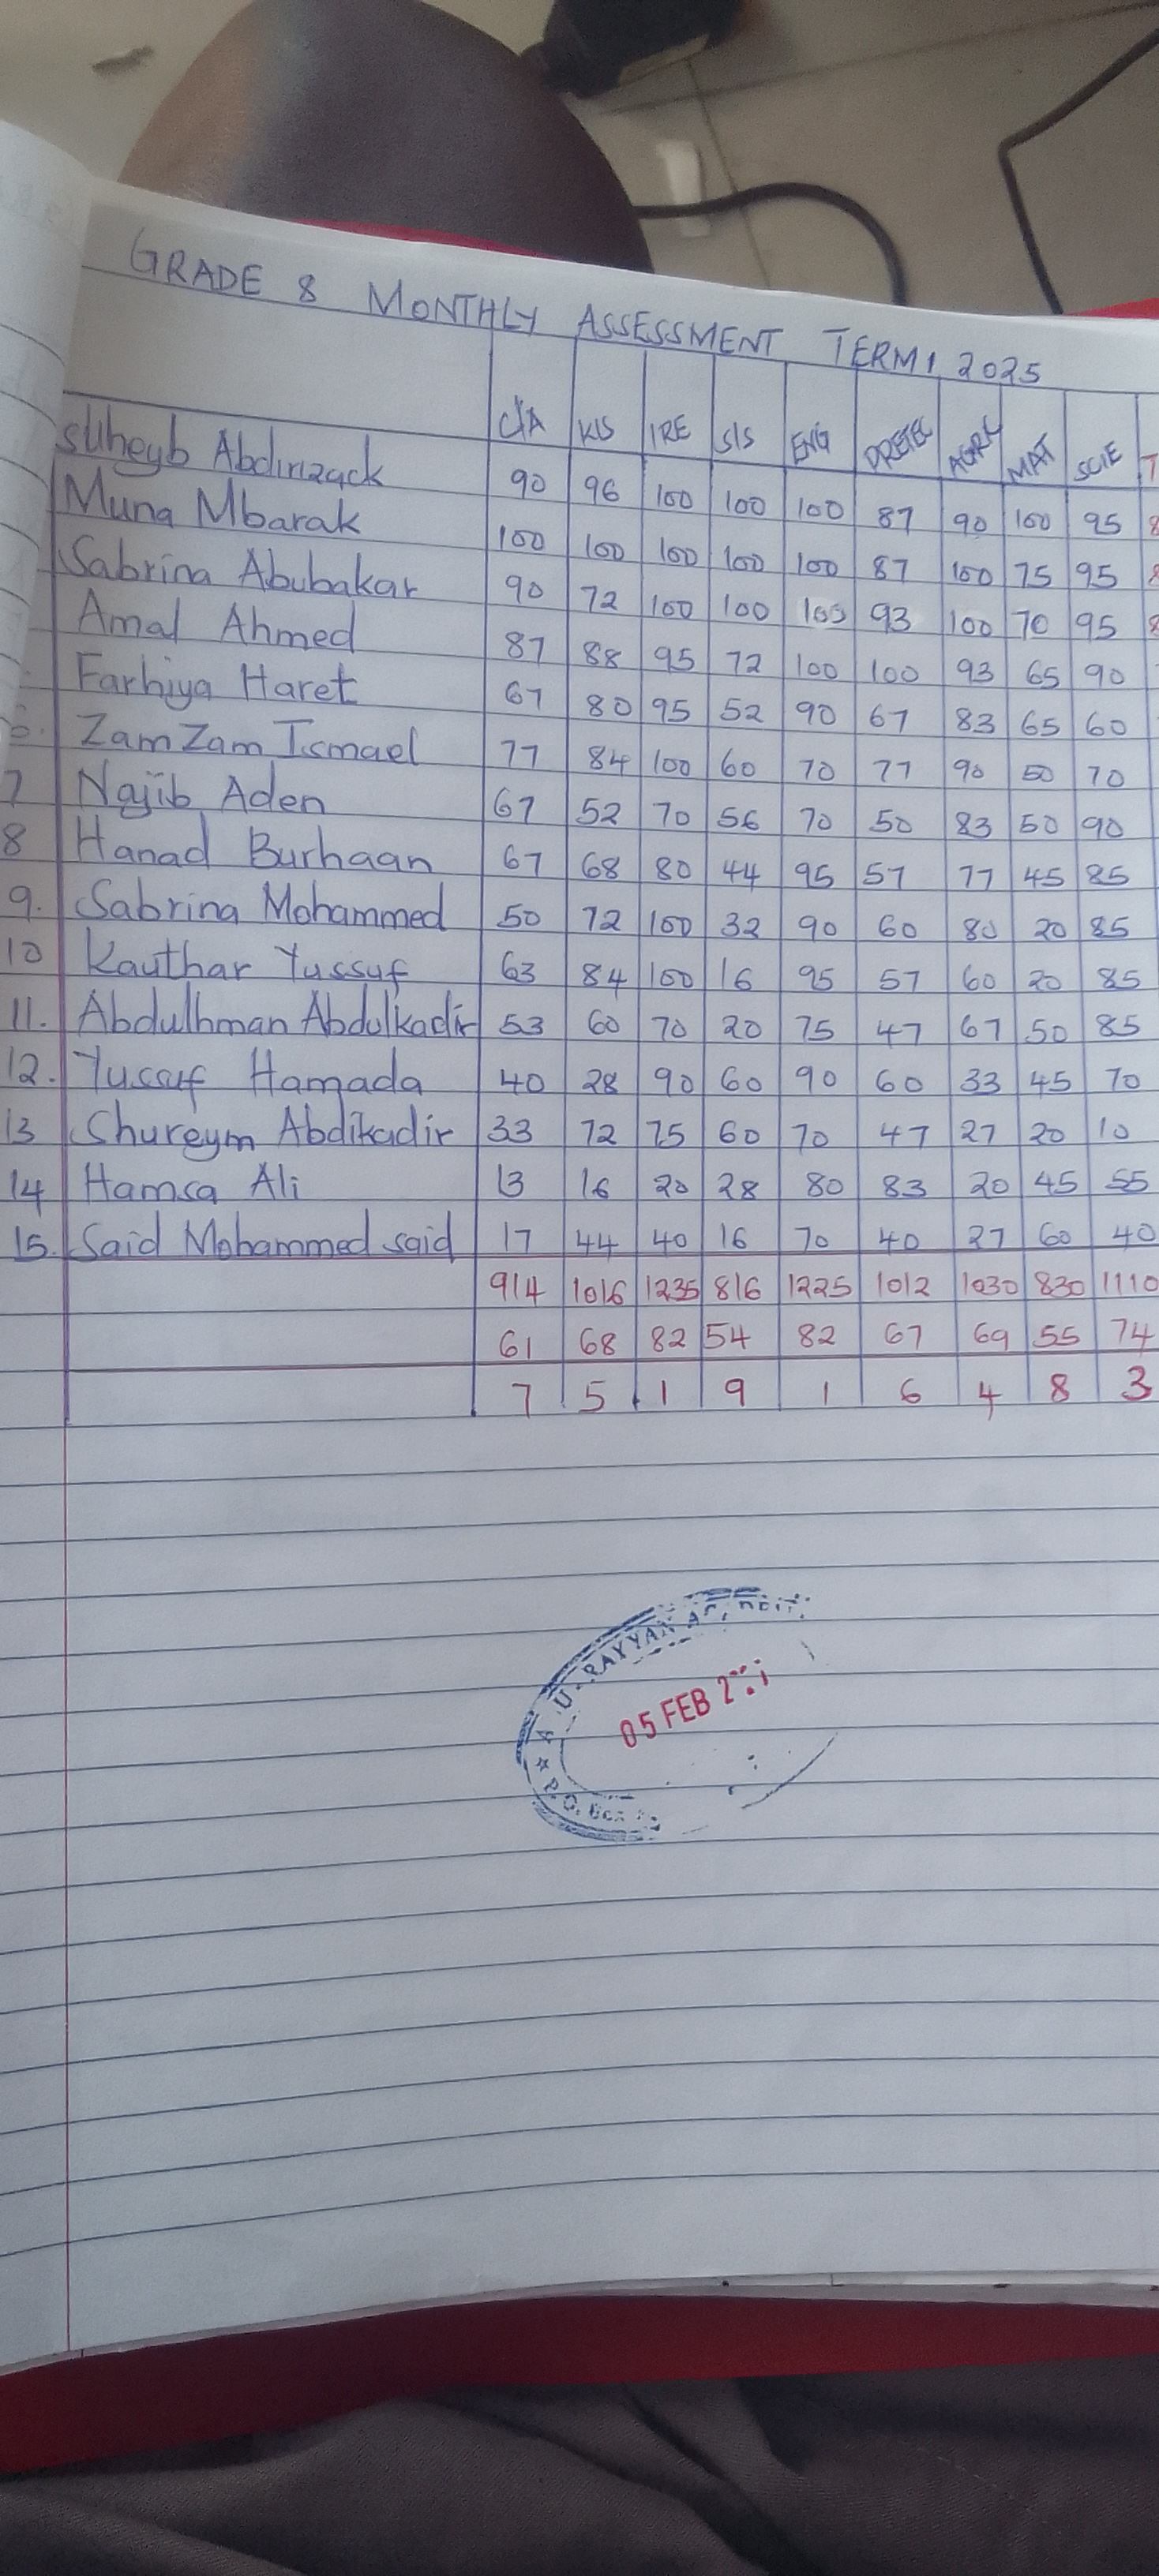 GRADE 8 MONTHLY ASSESSMENT TERM 1 2025
C/A KIS IRE S/S ENG PRETEC AGRI MAT SCIE T
Suheyb Abdirizack 90 96 100 100 100 87 90 100 95 8
Muna Mbarak 100 100 100 100 100 87 100 75 95 8
Sabrina Abubakar 90 72 100 100 100 93 100 70 95 8
Amal Ahmed 87 88 95 72 100 100 93 65 90
Farhiya Haret 67 80 95 52 90 67 83 65 60
6. ZamZam Ismael 77 84 100 60 70 77 90 50 70
7 Najib Aden 67 52 70 56 70 50 83 50 90
8 Hanad Burhaan 67 68 80 44 95 57 77 45 85
9. Sabrina Mohammed 50 72 100 32 90 60 80 20 85
10 Kauthar Yussuf 63 84 100 16 95 57 60 20 85
11. Abdulhman Abdulkadir 53 60 70 20 75 47 67 50 85
12. Yussuf Hamada 40 28 90 60 90 60 33 45 70
13 Shureym Abdikadir 33 72 75 60 70 47 27 20 10
14 Hamsa Ali 13 16 20 28 80 83 20 45 55
15. Said Mohammed said 17 44 40 16 70 40 27 60 40
914 1016 1235 816 1225 1012 1030 830 1110
61 68 82 54 82 67 69 55 74
7 5 1 9 1 6 4 8 3
RAYYAN
05 FEB
P.O. Box